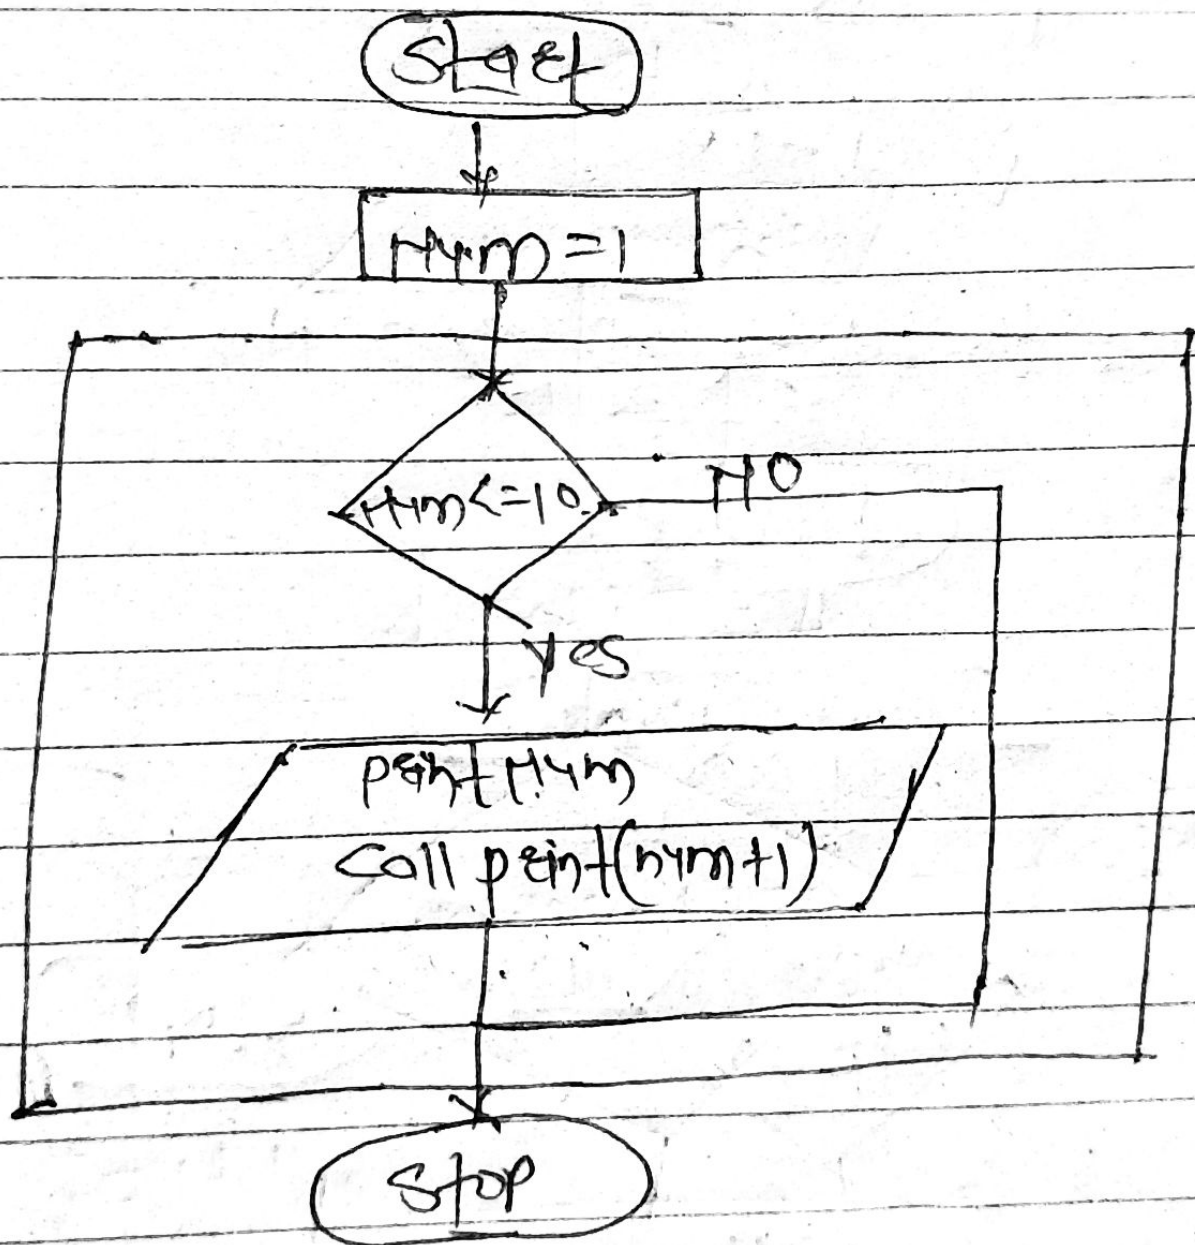 Start
Num=1
Num<=10
NO
Yes
print Num
Call print(num+1)
Stop